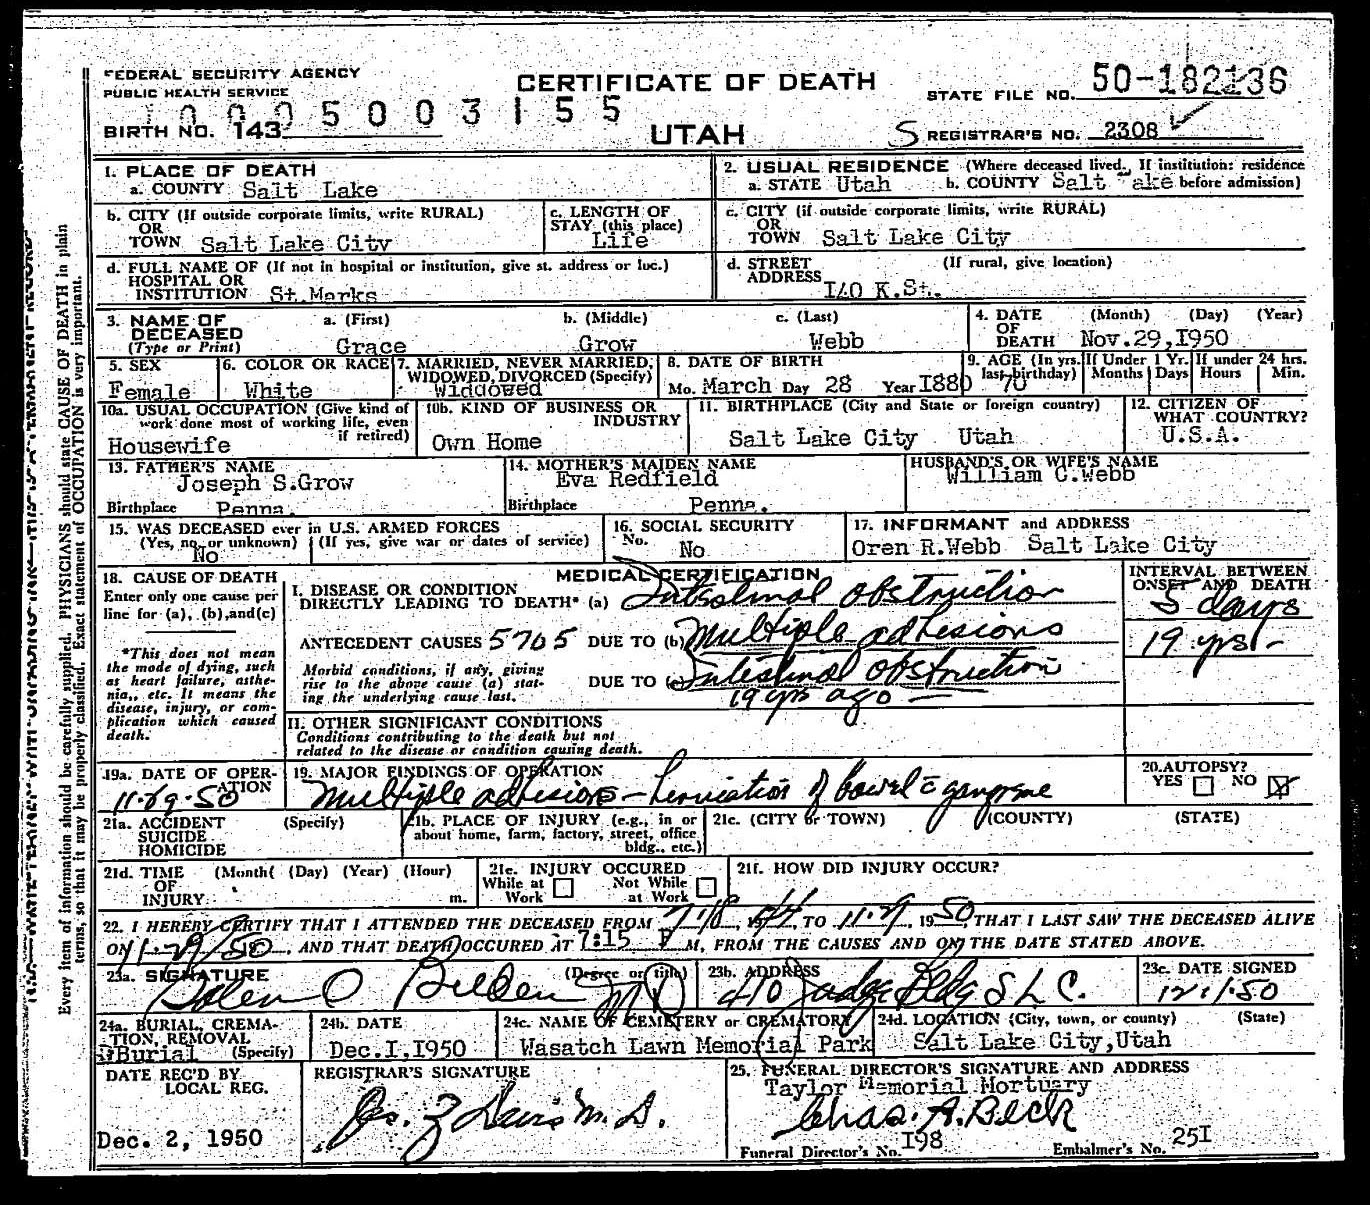 FEDERAL SECURITY AGENCY
PUBLIC HEALTH SERVICE
CERTIFICATE OF DEATH
STATE FILE NO. 50-182136
5003155
BIRTH NO. 143
UTAH
S REGISTRAR'S NO. 2308
1. PLACE OF DEATH
a. COUNTY Salt Lake
2. USUAL RESIDENCE (Where deceased lived. If institution: residence
a. STATE Utah b. COUNTY Salt Lake before admission)
b. CITY (If outside corporate limits, write RURAL)
OR
TOWN Salt Lake City
c. LENGTH OF
STAY (this place)
Life
c. CITY (if outside corporate limits, write RURAL)
OR
TOWN Salt Lake City
d. FULL NAME OF (If not in hospital or institution, give st. address or loc.)
HOSPITAL OR
INSTITUTION St.Marks
d. STREET (If rural, give location)
ADDRESS I40 K.St.
3. NAME OF DECEASED (Type or Print)
a. (First) b. (Middle) c. (Last)
Grace Grow Webb
4. DATE OF DEATH (Month) (Day) (Year)
Nov.29,I950
5. SEX
Female
6. COLOR OR RACE
White
7. MARRIED, NEVER MARRIED,
WIDOWED, DIVORCED (Specify)
Widdowed
8. DATE OF BIRTH
Mo. March Day 28 Year I880
9. AGE (In yrs. last birthday) 70
If Under 1 Yr. Months Days
If under 24 hrs. Hours Min.
10a. USUAL OCCUPATION (Give kind of
work done most of working life, even
if retired)
Housewife
10b. KIND OF BUSINESS OR
INDUSTRY
Own Home
11. BIRTHPLACE (City and State or foreign country)
Salt Lake City Utah
12. CITIZEN OF
WHAT COUNTRY?
U.S.A.
13. FATHER'S NAME
Joseph S.Grow
Birthplace Penna.
14. MOTHER'S MAIDEN NAME
Eva Redfield
Birthplace Penna.
HUSBAND'S OR WIFE'S NAME
William C.Webb
15. WAS DECEASED ever in U.S. ARMED FORCES
(Yes, no, or unknown) (If yes, give war or dates of service)
No
16. SOCIAL SECURITY
No. No
17. INFORMANT and ADDRESS
Oren R.Webb Salt Lake City
18. CAUSE OF DEATH
Enter only one cause per
line for (a), (b), and (c)
*This does not mean
the mode of dying, such
as heart failure, asthe-
nia,, etc. It means the
disease, injury, or com-
plication which caused
death.
MEDICAL CERTIFICATION
I. DISEASE OR CONDITION
DIRECTLY LEADING TO DEATH* (a) Intestinal obstruction
ANTECEDENT CAUSES 5705 DUE TO (b) Multiple adhesions
Morbid conditions, if any, giving
rise to the above cause (a) stat-
ing the underlying cause last.
DUE TO (c) Intestinal obstruction
19 yrs ago
II. OTHER SIGNIFICANT CONDITIONS
Conditions contributing to the death but not
related to the disease or condition causing death.
INTERVAL BETWEEN
ONSET AND DEATH
5 days
19 yrs
19a. DATE OF OPER-
ATION
11-29-50
19. MAJOR FINDINGS OF OPERATION
Multiple adhesions - of bowel c̄ gangrene
20. AUTOPSY?
YES NO
21a. ACCIDENT (Specify)
SUICIDE
HOMICIDE
21b. PLACE OF INJURY (e.g., in or
about home, farm, factory, street, office
bldg., etc.)
21c. (CITY or TOWN) (COUNTY) (STATE)
21d. TIME (Month( (Day) (Year) (Hour)
OF
INJURY m.
21e. INJURY OCCURED
While at Work Not While at Work
21f. HOW DID INJURY OCCUR?
22. I HEREBY CERTIFY THAT I ATTENDED THE DECEASED FROM 7-18, 1944 TO 11-29, 1950, THAT I LAST SAW THE DECEASED ALIVE
ON 11-29/50 AND THAT DEATH OCCURED AT 7:15 P M, FROM THE CAUSES AND ON THE DATE STATED ABOVE.
23a. SIGNATURE (Degree or title) MD
23b. ADDRESS
410 Judge Bldg S L C.
23c. DATE SIGNED
12-1-50
24a. BURIAL, CREMA-
TION, REMOVAL
(Specify) Burial
24b. DATE
Dec.I,I950
24c. NAME OF CEMETERY or CREMATORY
Wasatch Lawn Memorial Park
24d. LOCATION (City, town, or county) (State)
Salt Lake City,Utah
DATE REC'D BY
LOCAL REG.
Dec. 2, 1950
REGISTRAR'S SIGNATURE
Jos. Z Davis M.D.
25. FUNERAL DIRECTOR'S SIGNATURE AND ADDRESS
Taylor Memorial Mortuary
Chas. A. Beck
Funeral Director's No. I98 Embalmer's No. 25I
Every item of information should be carefully supplied. PHYSICIANS should state CAUSE OF DEATH in plain
terms, so that it may be properly classified. Exact statement of OCCUPATION is very important.